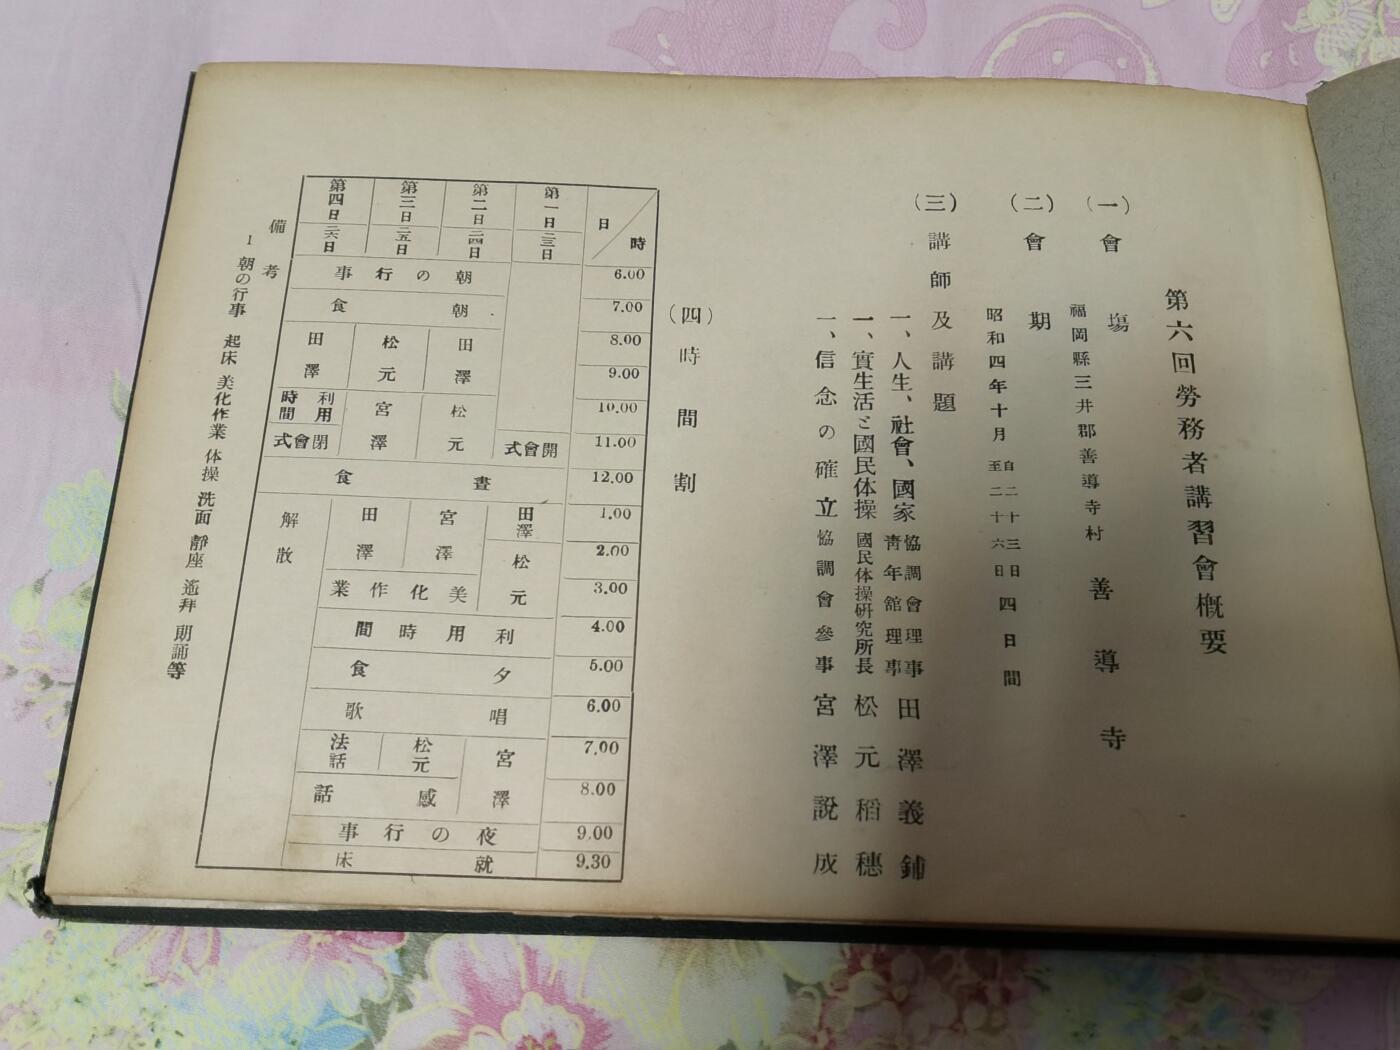 第六回勞務者講習會概要
(一)會場
福岡縣三井郡善導寺村 善導寺
(二)會期
昭和四年十月自二十三日至二十六日四日間
(三)講師及講題
一、人生、社會、國家 協調會理事 靑年舘理事 田澤義鋪
一、實生活と國民体操 國民体操硏究所長 松元稻穗
一、信念の確立 協調會參事 宮澤說成
(四)時間割
時 日
6.00
7.00
8.00
9.00
10.00
11.00
12.00
1.00
2.00
3.00
4.00
5.00
6.00
7.00
8.00
9.00
9.30
第一日 二三日
開會式
田澤
松元
第二日 二四日
田澤
松元
宮澤
宮澤
第三日 二五日
松元
宮澤
田澤
松元
第四日 二六日
田澤
利用時間
閉會式
解散
朝の行事
朝食
晝食
美化作業
利用時間
夕食
唱歌
法話
感話
夜の行事
就床
備考
1 朝の行事 起床 美化作業 体操 洗面 靜座 遙拜 朗誦等